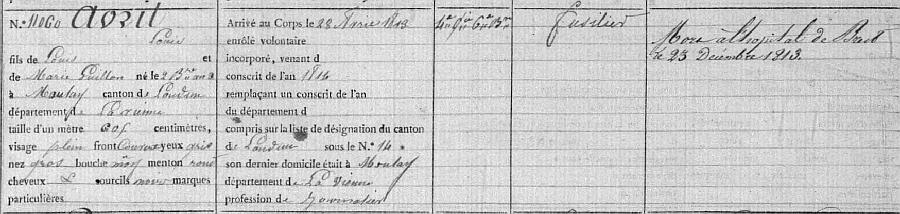 N.º 11060 Avril
Louis
fils de Louis et
de Marie Guillon né le 2 Bre an 2
à Moulay canton de Loudun
département de la Vienne
taille d'un mètre 605 centimètres,
visage plein front Couvert yeux gris
nez gros bouche moy menton rond
cheveux & sourcils noirs marques
particulières
Arrivé au Corps le 28 Avril 1813
enrôlé volontaire
incorporé, venant d
conscrit de l'an 1814
remplaçant un conscrit de l'an
du département d
compris sur la liste de désignation du canton
de Loudun sous le N.º 14
son dernier domicile était à Moulay
département de La Vienne
profession de Journalier
4e 6e Bon
Fusilier
Mort à l'hopital de Brest
le 23 Décembre 1813.